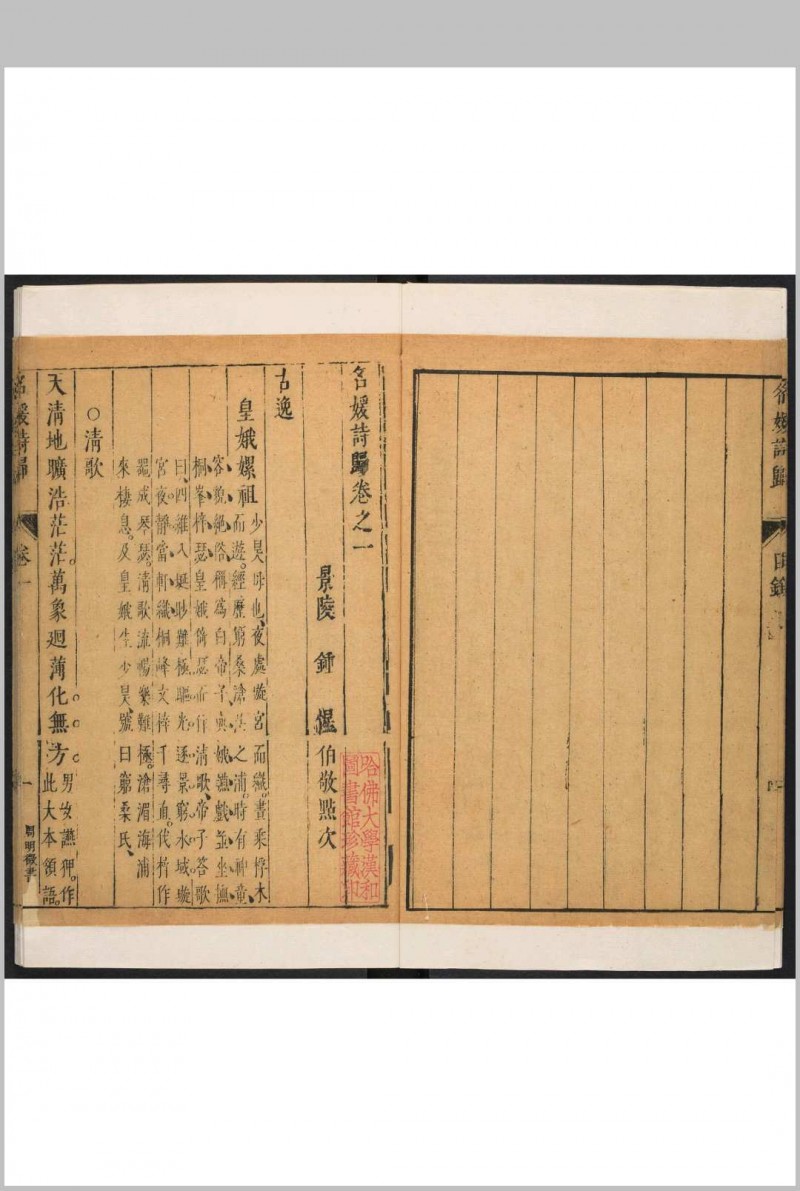 名媛詩歸
名媛詩歸卷之一
景陵 鍾 惺 伯敬點次
哈佛大學漢和
圖書館珍藏印
古逸
皇娥嫘祖
少昊母也、夜處璇宮而織。晝乘桴木
而遊。經歷窮桑滄茫之浦。時有神童、
容貌絕俗、稱為白帝子、與娥讌戲、並坐撫
桐峯梓瑟、皇娥倚瑟而作清歌、帝子答歌
曰、四維八埏眇難極、驅光逐景窮水域、璇
宮夜靜當軒織、桐峰文梓千尋直。伐梓作
器成琴瑟。清歌流暢樂難極。滄湄海浦
來棲息。及皇娥生少昊、號曰窮桑氏、
○清歌
天清地曠浩茫茫。萬象迴薄化無方
男女讌狎。作
此大本領語。
名媛詩歸
卷一
一
周明徵書